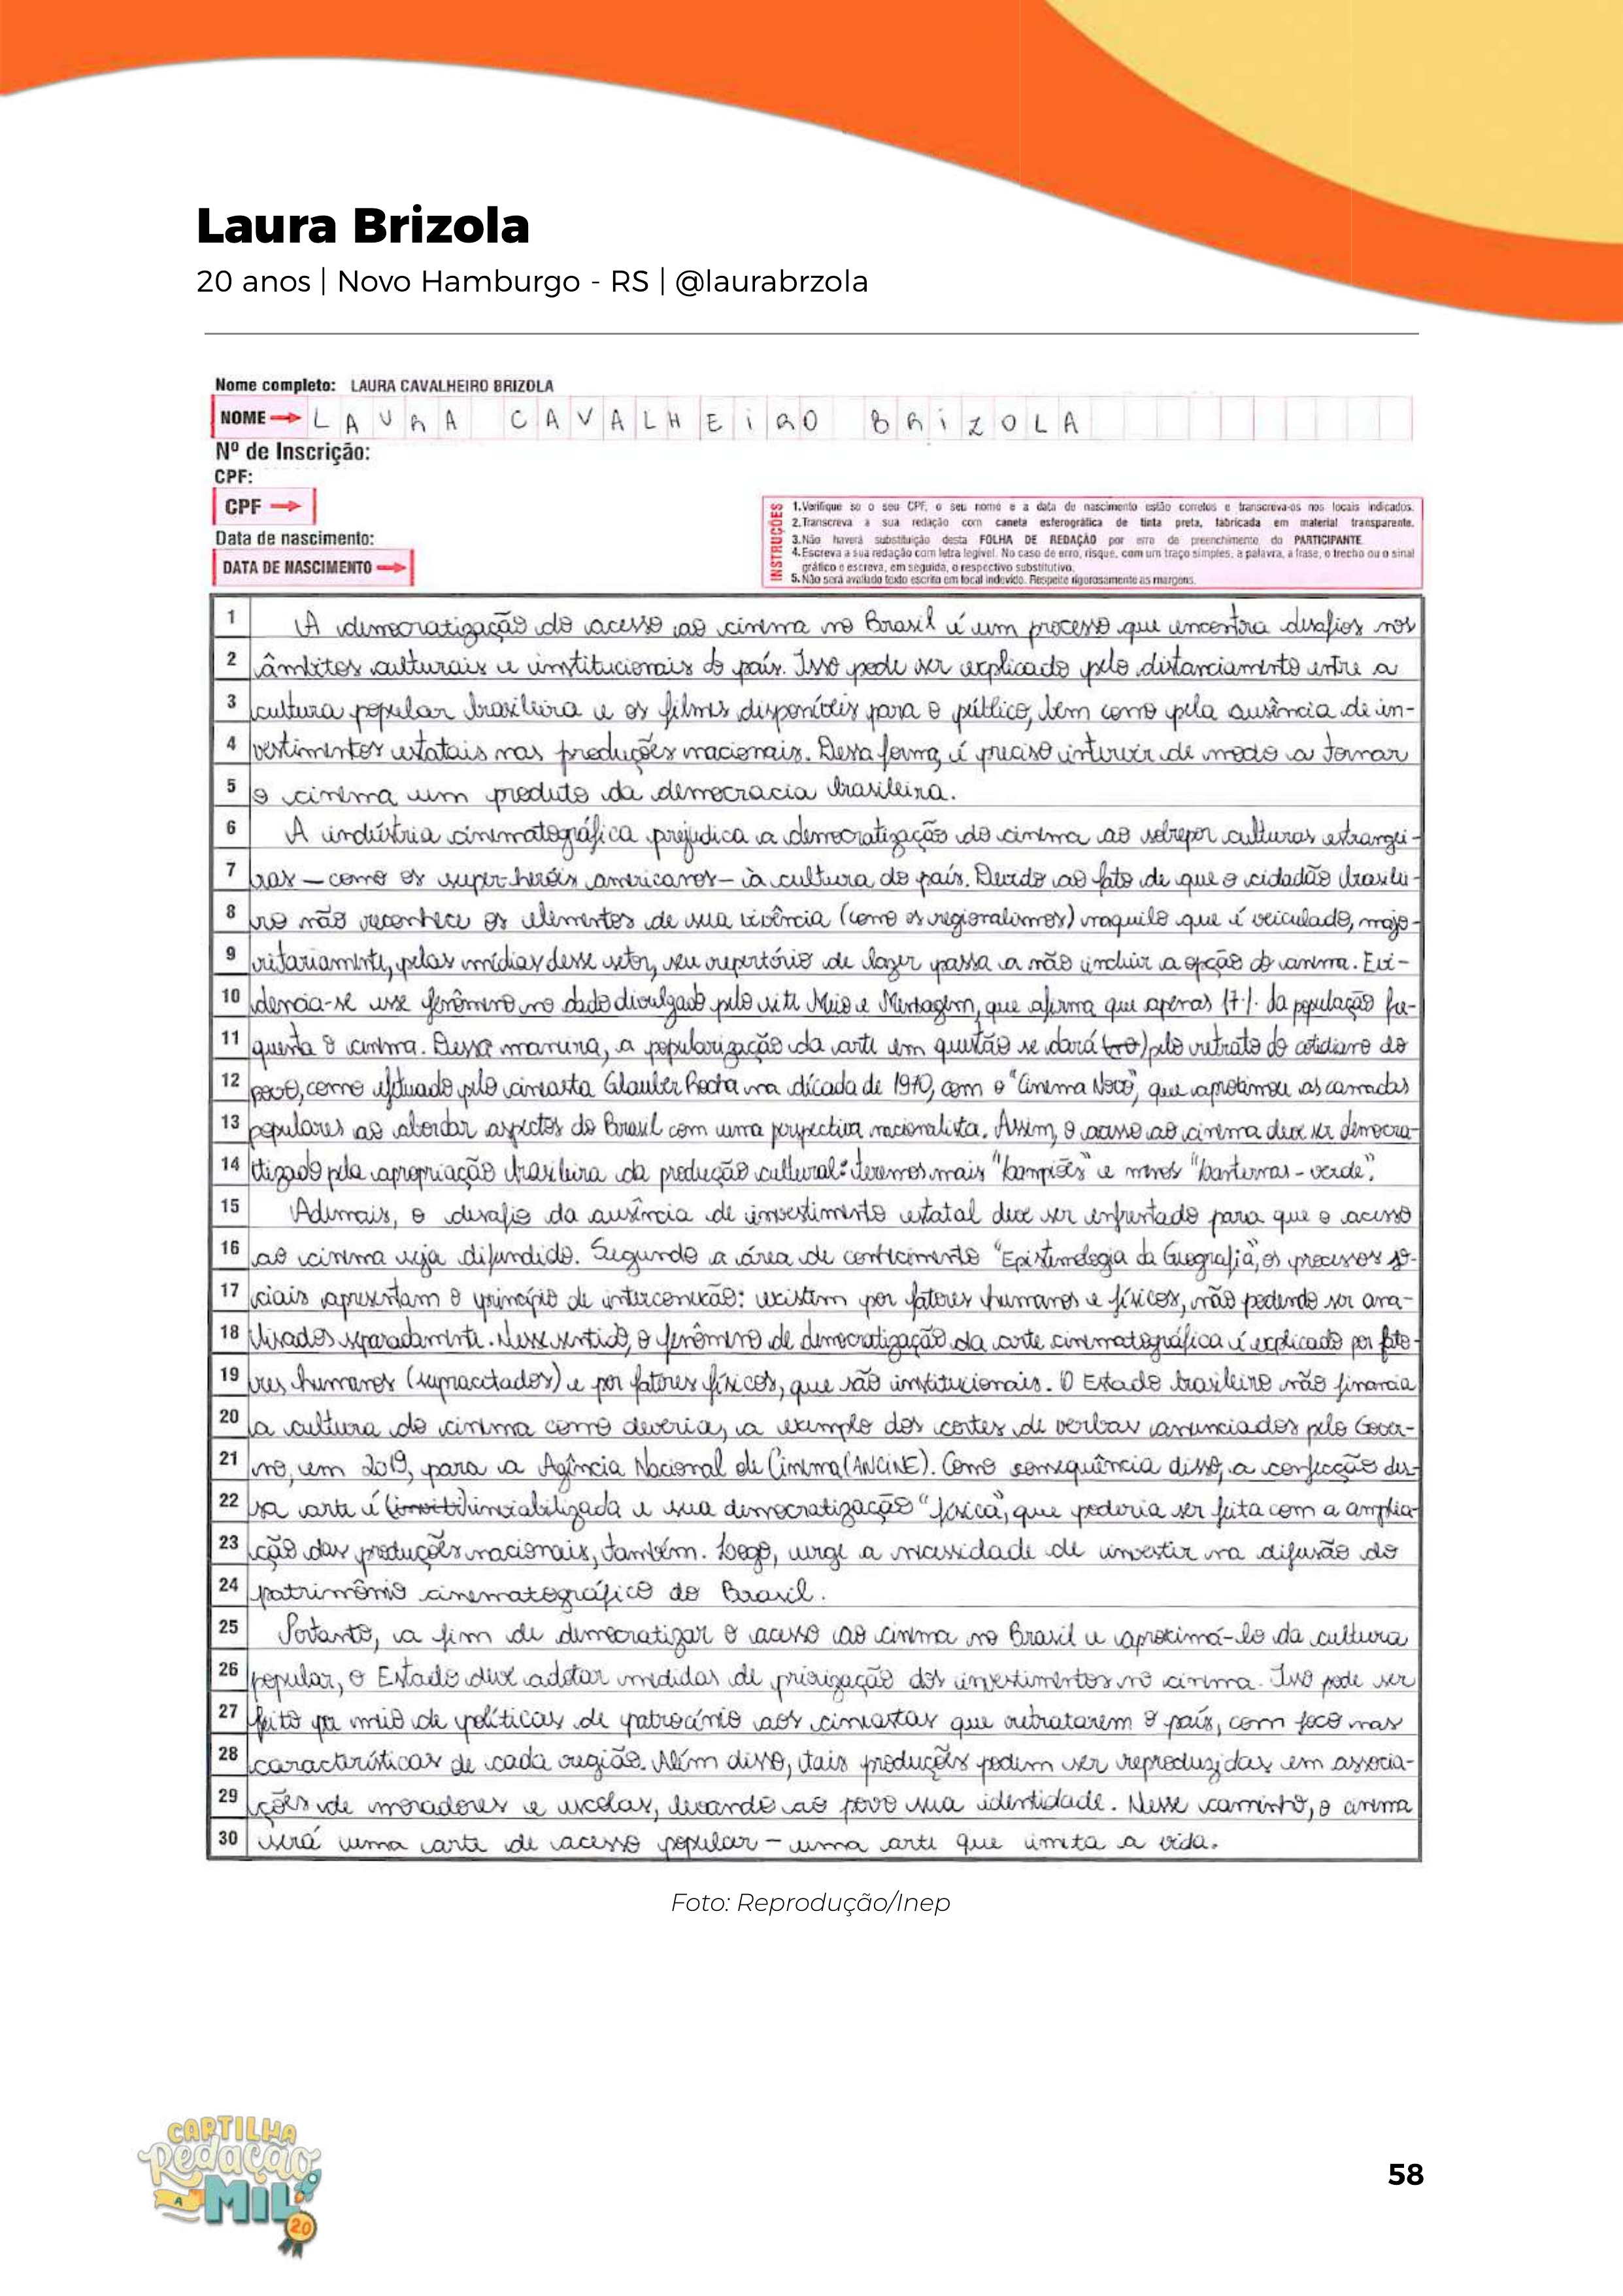 Laura Brizola
20 anos | Novo Hamburgo - RS | @laurabrzola
Nome completo: LAURA CAVALHEIRO BRIZOLA
NOME LAURA CAVALHEIRO BRIZOLA
Nº de Inscrição:
CPF:
CPF
Data de nascimento:
DATA DE NASCIMENTO
INSTRUÇÕES
1.Verifique se o seu CPF, o seu nome e a data de nascimento estão corretos e transcreva-os nos locais indicados.
2.Transcreva a sua redação com caneta esferográfica de tinta preta, fabricada em material transparente.
3.Não haverá substituição desta FOLHA DE REDAÇÃO por erro de preenchimento do PARTICIPANTE.
4.Escreva a sua redação com letra legível. No caso de erro, risque, com um traço simples, a palavra, a frase, o trecho ou o sinal
gráfico e escreva, em seguida, o respectivo substitutivo.
5.Não será avaliado texto escrito em local indevido. Respeite rigorosamente as margens.
1 A democratização do acesso ao cinema no Brasil é um processo que encontra desafios nos
2 âmbitos culturais e institucionais do país. Isso pode ser explicado pelo distanciamento entre a
3 cultura popular brasileira e os filmes disponíveis para o público, bem como pela ausência de in-
4 vestimentos estatais nas produções nacionais. Dessa forma, é preciso intervir de modo a tornar
5 o cinema um produto da democracia brasileira.
6 A indústria cinematográfica prejudica a democratização do cinema ao sobrepor culturas estrangei-
7 ras – como os super-heróis americanos – à cultura do país. Devido ao fato de que o cidadão brasilei-
8 ro não reconhece os elementos de sua vivência (como os regionalismos) naquilo que é veiculado, majo-
9 ritariamente, pelas mídias desse setor, seu repertório de lazer passa a não incluir a opção do cinema. Evi-
10 dencia-se esse fenômeno no dado divulgado pelo site Meio e Mensagem, que afirma que apenas 17% da população fre-
11 quenta o cinema. Dessa maneira, a popularização da arte em questão se dará (tro) pelo retrato do cotidiano do
12 povo, como efetuado pelo cineasta Glauber Rocha na década de 1970, com o "Cinema Novo", que aproximou as camadas
13 populares ao abordar aspectos do Brasil com uma perspectiva nacionalista. Assim, o acesso ao cinema deve ser democra-
14 tizado pela apropriação brasileira da produção cultural: teremos mais "lampiões" e menos "lanternas-verde".
15 Ademais, o desafio da ausência de investimento estatal deve ser enfrentado para que o acesso
16 ao cinema seja difundido. Segundo a área de conhecimento "Epistemologia da Geografia", os processos so-
17 ciais apresentam o princípio de interconexão: existem por fatores humanos e físicos, não podendo ser ana-
18 lisados separadamente. Nesse sentido, o fenômeno de democratização da arte cinematográfica é explicado por fato-
19 res humanos (supracitados) e por fatores físicos, que são institucionais. O Estado brasileiro não financia
20 a cultura do cinema como deveria, a exemplo dos cortes de verbas anunciados pelo Gover-
21 no, em 2019, para a Agência Nacional de Cinema (ANCINE). Como consequência disso, a confecção des-
22 sa arte é inviabilizada e sua democratização "física", que poderia ser feita com a amplia-
23 ção das produções nacionais, também. Logo, urge a necessidade de investir na difusão do
24 patrimônio cinematográfico do Brasil.
25 Portanto, a fim de democratizar o acesso ao cinema no Brasil e aproximá-lo da cultura
26 popular, o Estado deve adotar medidas de priorização dos investimentos no cinema. Isso pode ser
27 feito por meio de políticas de patrocínio aos cineastas que retratarem o país, com foco nas
28 características de cada região. Além disso, tais produções podem ser reproduzidas em associa-
29 ções de moradores e escolas, levando ao povo sua identidade. Nesse caminho, o cinema
30 será uma arte de acesso popular – uma arte que imita a vida.
Foto: Reprodução/Inep
CARTILHA
Redação
A MIL
20
58